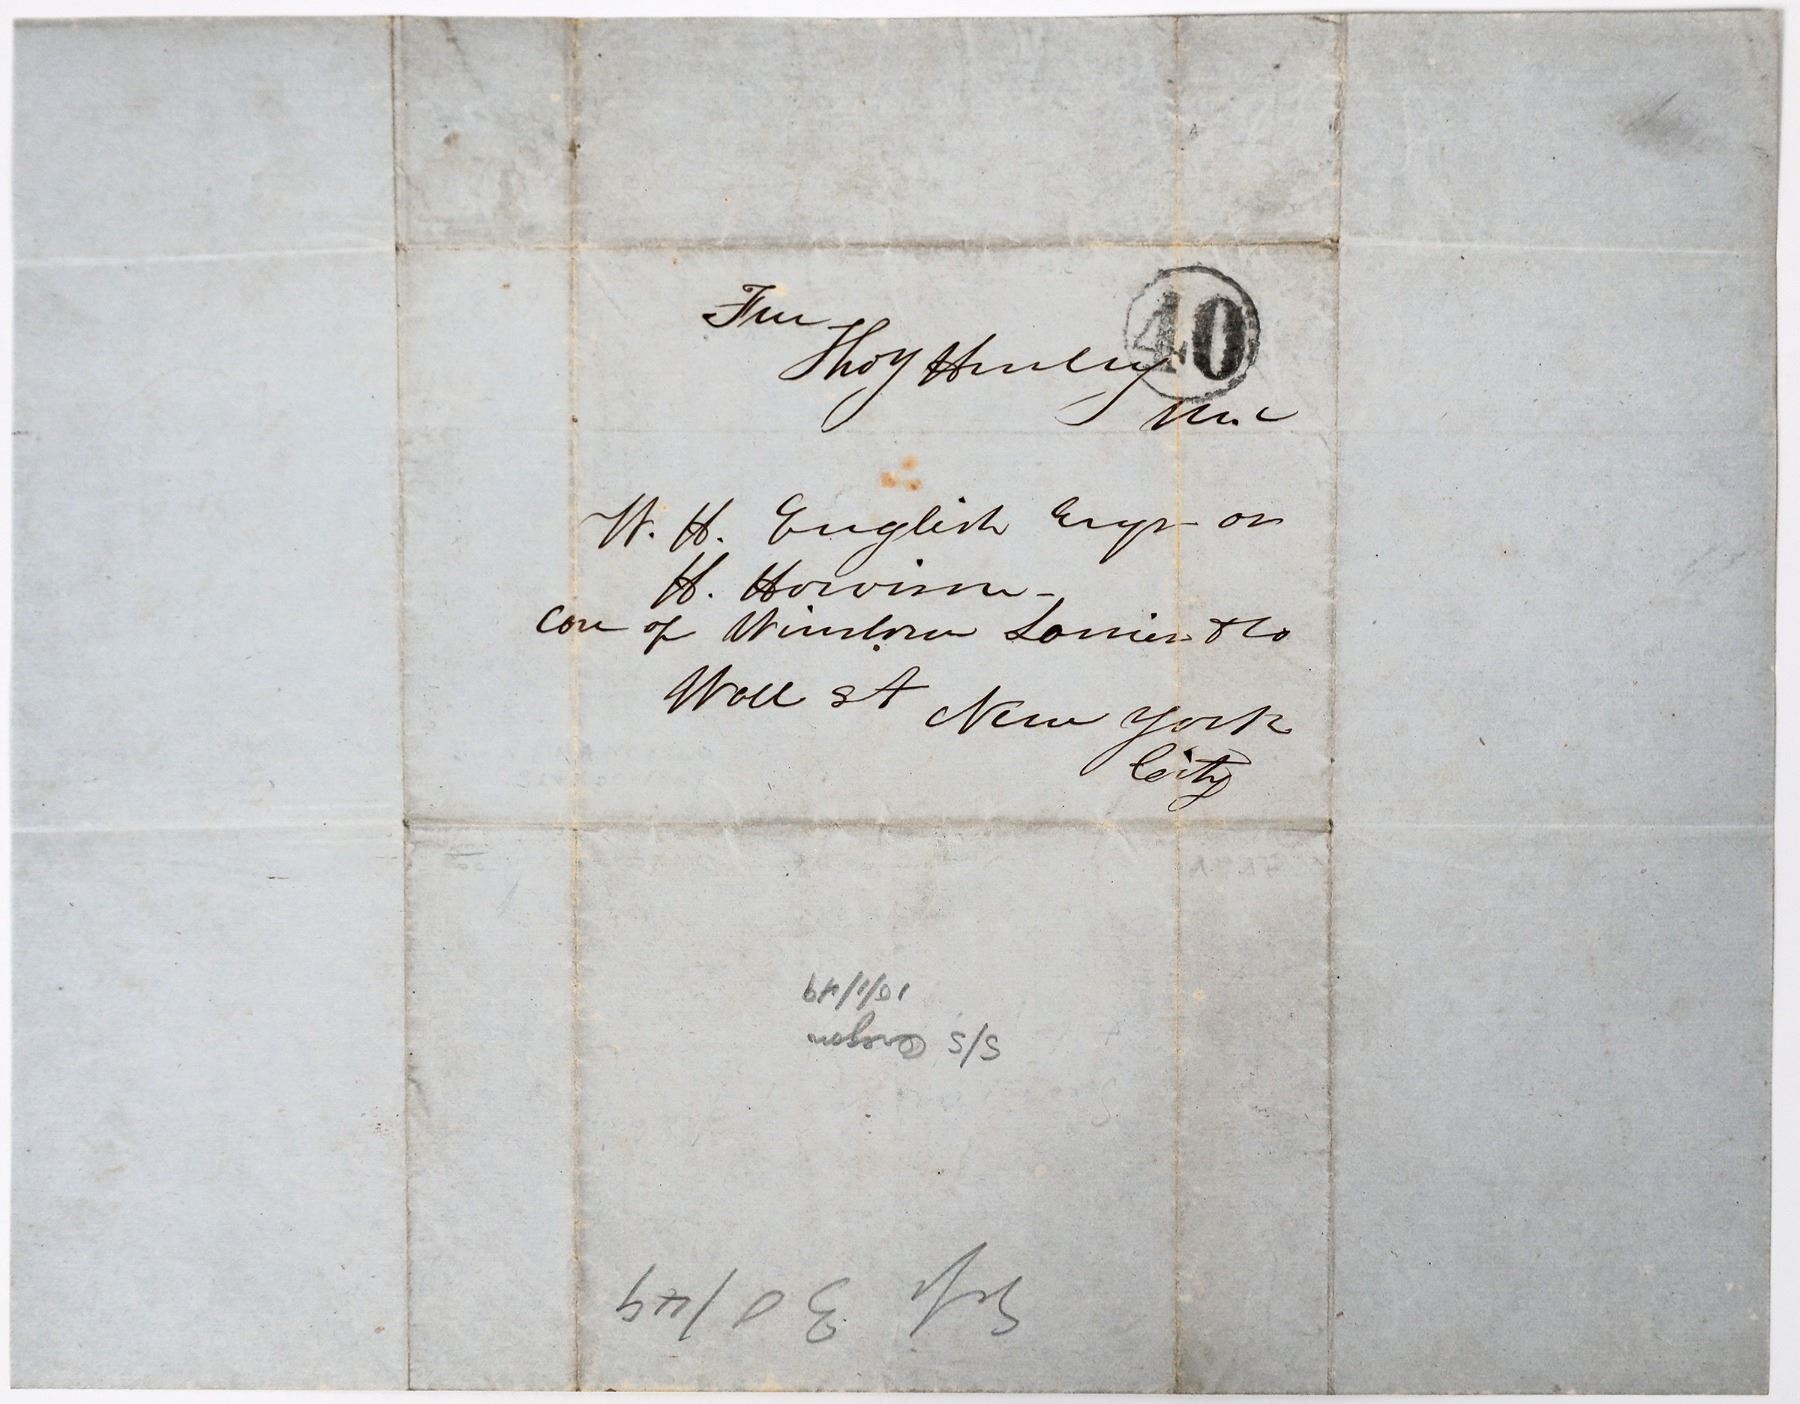 Free
Thos J Henley
M.C
40
W. H. English Esqr or
H. Horvison -
Care of Winslow Lanier & Co
Wall St New York
City
10/1/49
S/S Oregon
Sep 30/49